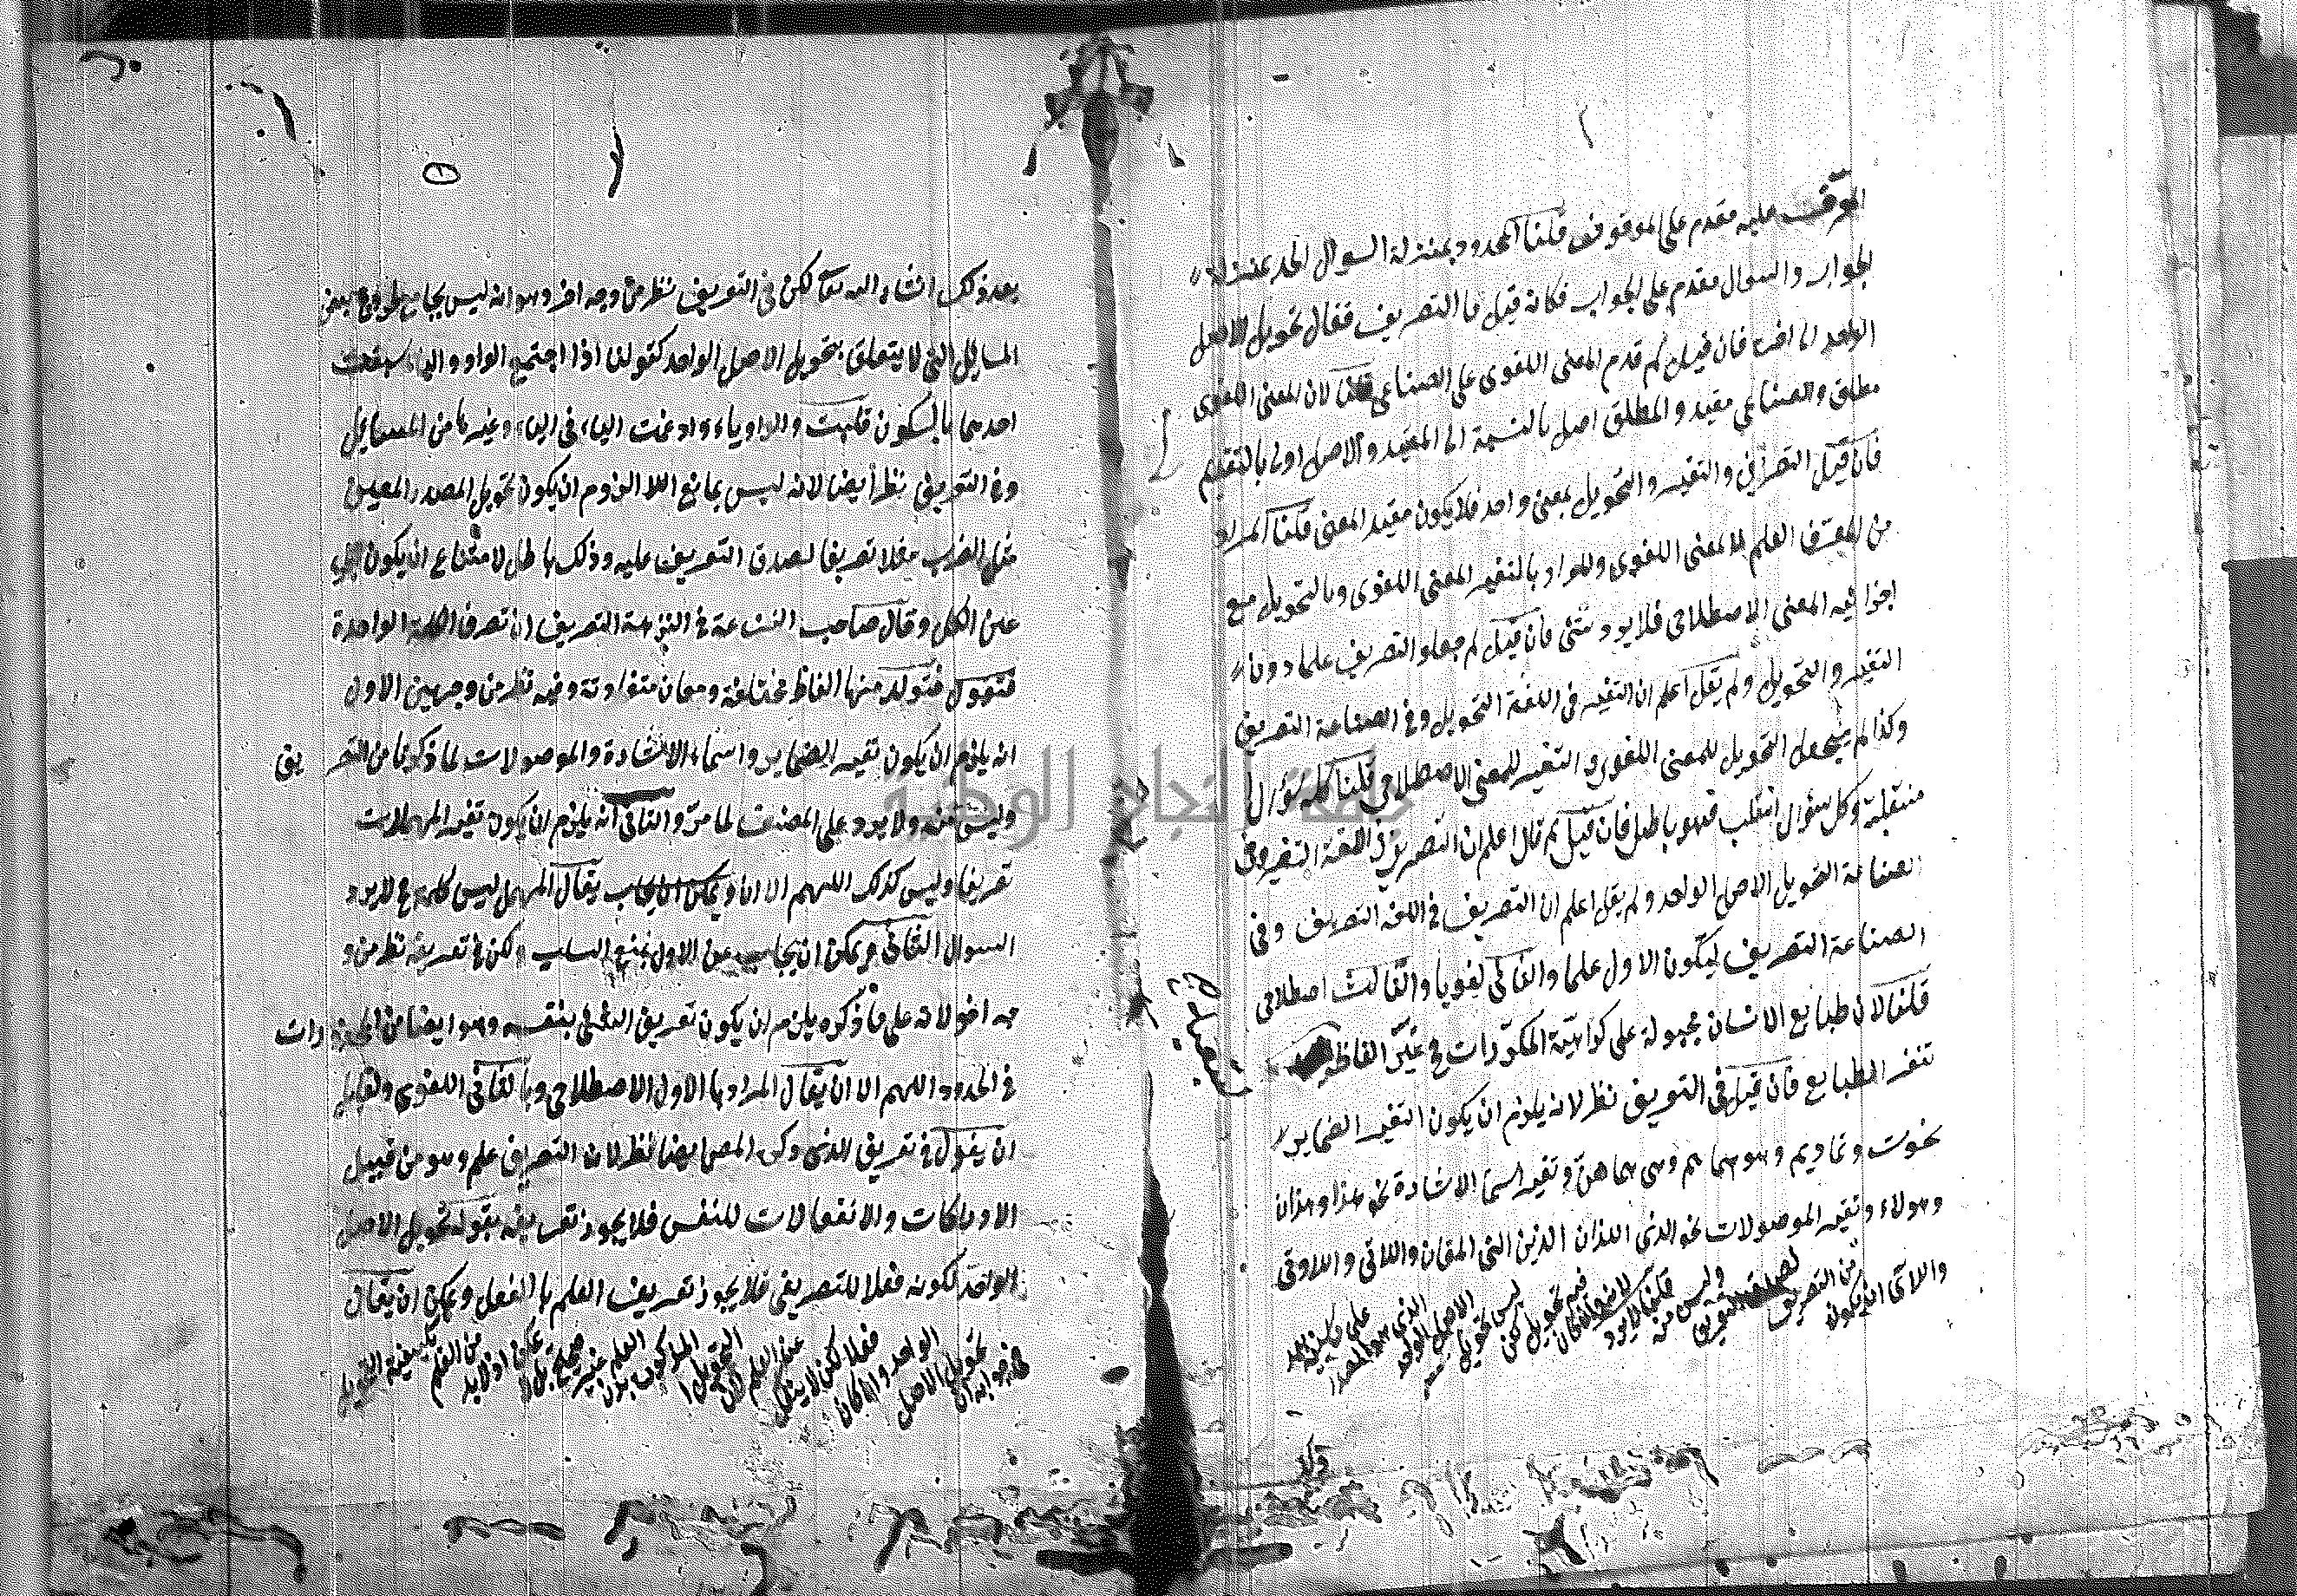 الموقوف عليه مقدم على الموقوف قلنا المحدود بمنزلة السوال الحد بمنزلة
الجواب والسوال مقدم على الجواب فكانه قيل ما التصريف فقال تحويل الاصل
الواحد الى اخره فان قيل لم قدم المعنى اللغوى على الصناعى قلنا لان المعنى اللغوى
مطلق والصناعى مقيد والمطلق اصل بالنسبة الى المقيد والاصل اولى بالتقديم
فان قيل التصريف والتغيير والتحويل بمعنى واحد فلا يكون مقيد المعنى قلنا المراد
من العلم المعنى اللغوى والمراد بالتغيير المعنى اللغوى وبالتحويل مع
اجزائه المعنى الاصطلاحى فلا يرد شئ فان قيل لم جعلوا التصريف علما دون
التغيير والتحويل ولم يقل اعلم ان التغيير فى اللغة التحويل وفى الصناعة التصريف
وكذا لم يجعل التحويل للمعنى اللغوى والتغيير للمعنى الاصطلاحى قلنا كله سؤال
منقلبة وكل سؤال انقلب فهو باطل فان قيل لم قال اعلم ان التصريف فى اللغة التغيير وفى
الصناعة التحويل الاصل الواحد ولم يقل اعلم ان التصريف فى اللغة التصريف وفى
الصناعة التصريف ليكون الاول علما والثانى لغويا والثالث اصطلاحى
قلنا لان طبايع الانسان مجبولة على كراهية المكررات فى غير الفاظه
تنفر الطبايع فان قيل فى التعريف نظر لانه يلزم ان يكون التغيير الضماير
نحو وهو هما هم وهى هما هن وتغيير اسما الاشارة نحو هذا وهذان
وهولاء وتغيير الموصولات نحو الذى اللذان الذين التى اللتان واللاتى واللاوتى
واللآئى ان يكون
من التصريف
وليس منه
قلنا لا يرد
فيه تحويل لكن
ليس تحويل
الاصل الواحد
الذى هو المصدر
بعد ذلك انشاء الله تعالى لكن فى التعريف نظر من وجه اخر وهو انه ليس بجامع لخروج بعض
المسايل التى لا يتعلق بتحويل الاصل الواحد كقولنا اذا اجتمع الواو والياء سبقت
احدهما بالسكون قلبت والواو ياء وادغمت الياء فى الياء وغيرها من المسايل
وفى التعريف نظر ايضا لانه ليس بمانع اللا الزوم ان يكون تحويل المصدر المعين
مثل الضرب مثلا تعريفا لصدق التعريف عليه وذلك باطل لامتناع ان يكون الجزء
عين الكل وقال صاحب فى النزهة التصريف ان تصرف الكلمة الواحدة
فتقول فتولد منها الفاظ مختلفة ومعان متفاوتة وفيه نظر من وجهين الاول
انه يلزم ان يكون تغيير الضماير واسماء الاشارة والموصولات لما ذكرنا من التعريف
وليس منه ولا يرد على المصنف لما مر والثانى انه يلزم ان يكون تغيير المهملات
تعريفا وليس كذلك اللهم الا ان ويمكن ان يجاب يقال المهمل ليس كلمة فح لا يرد
السوال الثانى ويمكن ان يجاب عن الاول بمنع السلب ولكن فى تعريفه نظر من و
جه اخر لانه على ما ذكره يلزم ان يكون تعريف الشئ بنفسه وهو ايضا من المحذورات
فى الحدود اللهم الا ان يقال المراد بالاول الاصطلاحى وبالثانى اللغوى ولقايل
ان يقول فى تعريف الذى ذكره المص ايضا نظر لان التصريف علم وهو من قبيل
الادراكات والانفعالات للنفس فلا يجوز تعريفه بقوله تحويل الاصل
الواحد لكونه فعلا للتصريفى فلا يجوز تعريف العلم بالفعل ويمكن ان يقال
فى جوابه ان
تحويل الاصل
الواحد وان كان
فعلا لكن لا ينفك
عن العلم لان
التحويل
المذكور بدون
العلم غير
من العلم
بكيفية التحويل